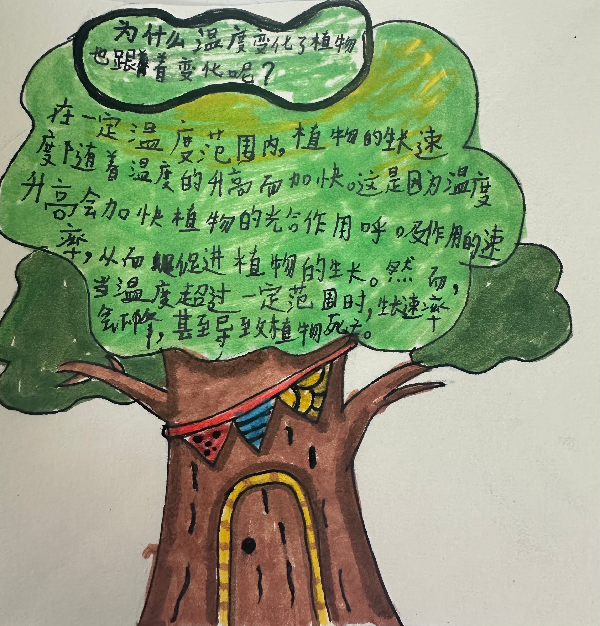 为什么温度变化了植物
也跟着变化呢？
在一定温度范围内。植物的生长速
度随着温度的升高而加快。这是因为温度
升高会加快植物的光合作用呼吸作用的速
率，从而促进植物的生长。然而，
当温度超过一定范围时，生长速率
急下降，甚至导致植物死亡。